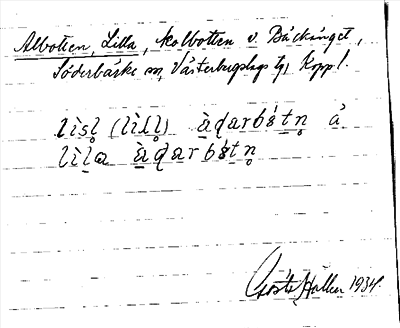 Albotten, Lilla, kolbotten v. Bäckänget,
Söderbärke sn, Västerbergslags tg, Kopp.l.
lìsḷ (lìlḷ) àdarbǻtṇ å
lìla àdarbǻtṇ
Gösta Holm 1934.